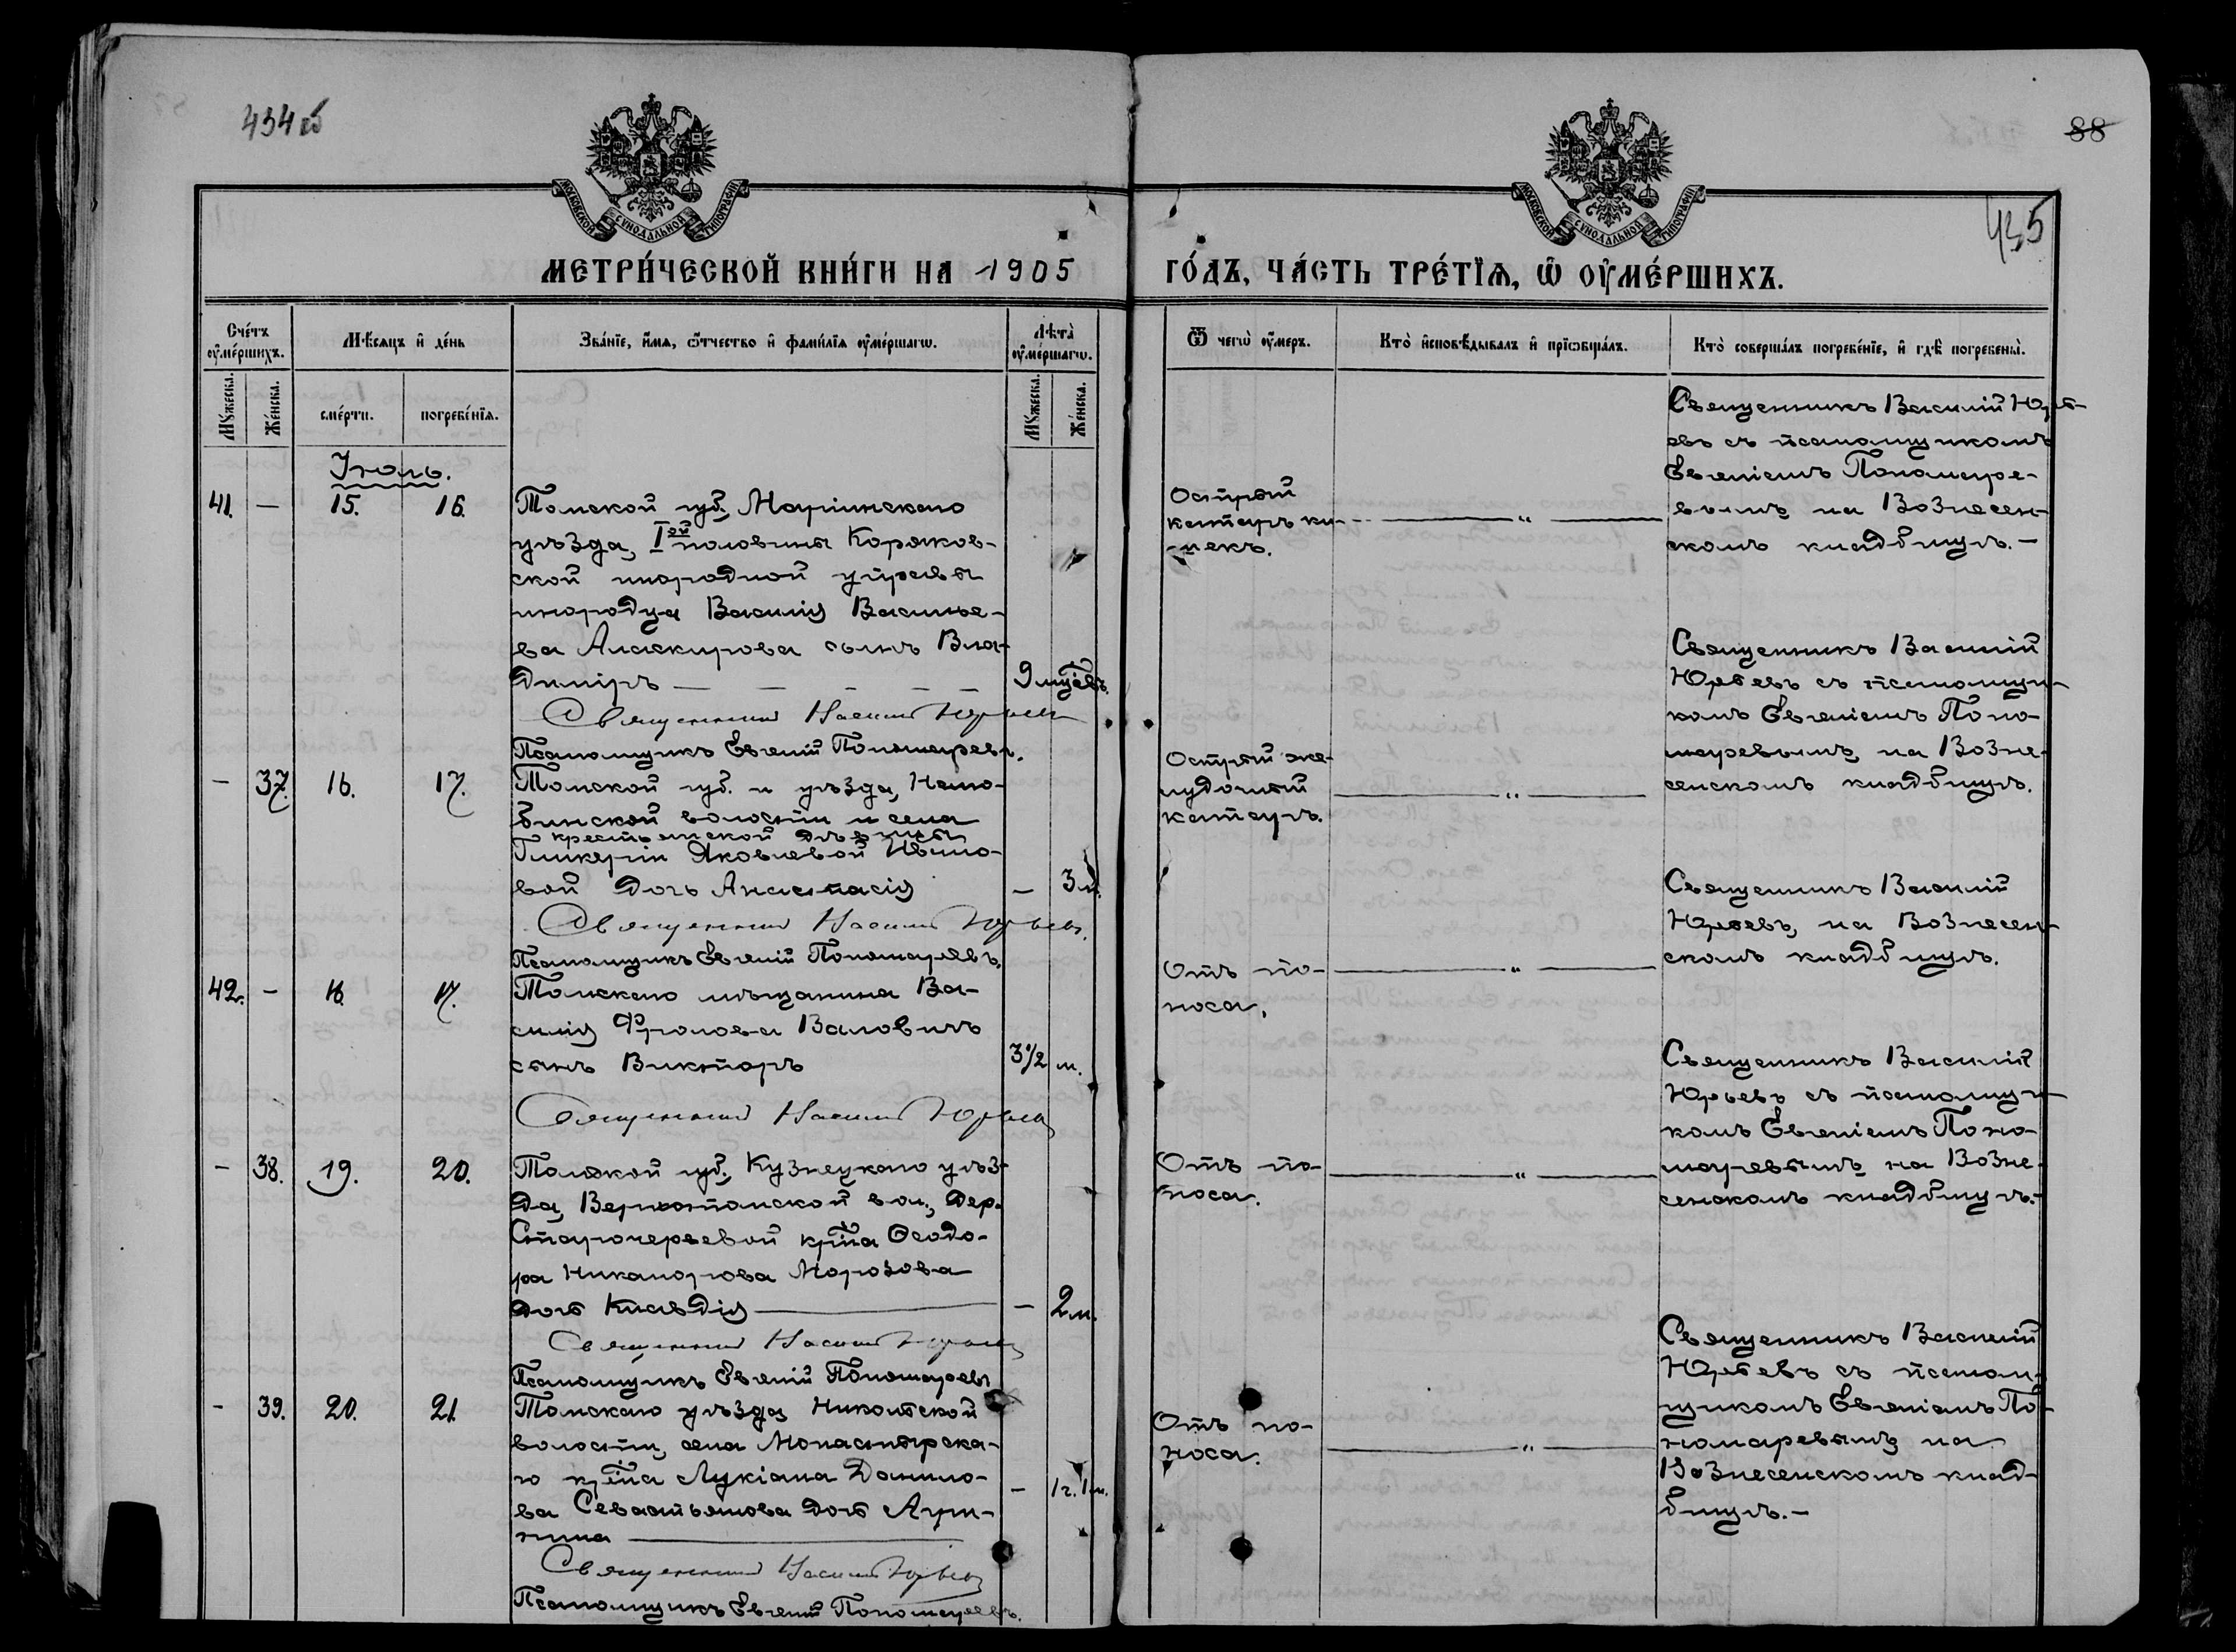 434 об
88
435
МОСКОВСКОЙ СѴНОДАЛЬНОЙ ТИПОГРАФІИ
МОСКОВСКОЙ СѴНОДАЛЬНОЙ ТИПОГРАФІИ
МЕТРИ́ЧЕСКОЙ КНИ́ГИ НА 1905
ГО́ДЪ, ЧА́СТЬ ТРЕ́ТЇѦ, Ѿ ОУ҆МЕ́РШИХЪ.
Сче́тъ оу҆ме́ршихъ.
Мѣ́сѧцъ и҆ де́нь
Зва́нїе, и҆́мѧ, ѻ҆́тчество и҆ фами́лїѧ оу҆ме́ршагѡ.
Лѣта̀ оу҆ме́ршагѡ.
Мꙋ́жеска.
Же́нска.
сме́рти.
погребе́нїѧ.
Мꙋ́жеска.
Же́нска.
Ѿ чегѡ̀ оу҆́меръ.
Кто̀ и҆сповѣ́дывалъ и҆ прїѡбща́лъ.
Кто̀ соверша́лъ погребе́нїе, и҆ гдѣ̀ погребены̀.
Іюль.
41. — 15. 16.
Томской губ., Маріинскаго
уѣзда, Iой половины Коряков-
ской инородной управы
инородца Василія Василье-
ва Аласкирова сынъ Вла-
диміръ — — — — —
9 мцевъ.
Священникъ Василій Юрьевъ
Псаломщикъ Евгеній Пономаревъ.
Острый
катаръ ки-
шекъ.
— „ —
Священникъ Василій Юрь-
евъ съ псаломщикомъ
Евгеніемъ Пономаре-
вымъ, на Вознесен-
скомъ кладбищѣ. —
— 37. 16. 17.
Томской губ. и уѣзда, Нелю-
бинской волости и села
крестьянской дѣвицы
Гликеріи Яковлевой Ивано-
вой дочь Анастасія
— 3 м.
Священникъ Василій Юрьевъ.
Псаломщикъ Евгеній Пономаревъ.
Острый же-
лудочный
катарръ.
— „ —
Священникъ Василій
Юрьевъ съ псаломщи-
комъ Евгеніемъ Поно-
маревымъ, на Возне-
сенскомъ кладбищѣ.
42. — 16. 17.
Томскаго мѣщанина Ва-
силія Фролова Валовичъ
сынъ Викторъ
3 1/2 м.
Священникъ Василій Юрьевъ
Отъ по-
носа.
— „ —
Священникъ Василій
Юрьевъ, на Вознесен-
скомъ кладбищѣ.
— 38. 19. 20.
Томской губ., Кузнецкаго уѣз-
да, Верхотомской вол., дер.
Старочервевой кр-на Ѳеодо-
ра Никанорова Морозова
дочь Клавдія —
— 2 м.
Священникъ Василій Юрьевъ
Псаломщикъ Евгеній Пономаревъ
Отъ по-
носа.
— „ —
Священникъ Василій
Юрьевъ съ псаломщи-
комъ Евгеніемъ Поно-
маревымъ, на Возне-
сенскомъ кладбищѣ. —
- 39. 20. 21.
Томскаго уѣзда Николаевской
волости, села Монастырска-
го кр-на Лукіана Данило-
ва Севастьянова дочь Агрип-
пина —
— 1 г. 1 м.
Священникъ Василій Юрьевъ
Псаломщикъ Евгеній Пономаревъ.
Отъ по-
носа.
— „ —
Священникъ Василій
Юрьевъ съ псалом-
щикомъ Евгеніемъ По-
номаревымъ, на
Вознесенскомъ клад-
бищѣ. —